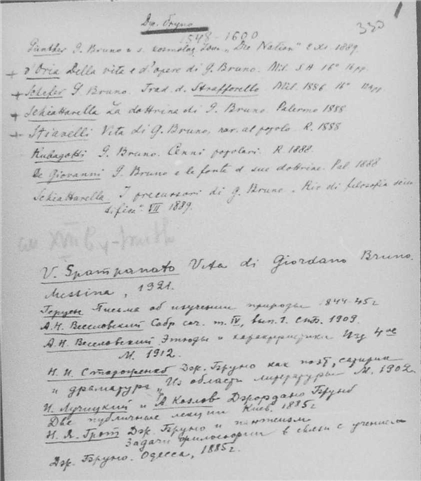 Дж. Бруно
330
1548-1600
Günther G. Bruno "Die Nation" 1889.
+ d'Oria Della vita e d'opere di G. Bruno. Mil. 16° 16 pp.
+ Scheler G. Bruno. Trad. d. Strafforello. Mil. 1886 16°
+ Schiattarella La dottrina di G. Bruno. Palermo 1888
+ Stiavelli Vita di G. Bruno. nar. al popolo. R. 1888
G. Bruno. Cenni popolari. R. 1888
De Giovanni G. Bruno e le fonte d. sue dottrine. Pal 1888
Schiattarella I precursori di G. Bruno. Riv. di filosofia scien
tifica VII 1889.
V. Spampanato Vita di Giordano Bruno.
Messina, 1921.
Герцен Письма об изучении природы 1844-45 г
А.Н. Веселовский Собр соч. т. IV, вып. 1. СПб. 1909.
А.Н. Веселовский Этюды и характеристики изд 4ое
М. 1912.
Н. И. Стороженко Дж. Бруно как поэт, сатирик
и драматург. Из области литературы М. 1902
И. Лучицкий и А. Козлов Джордано Бруно
Две публичные лекции Киев. 1885 г
Н. Я. Грот Дж. Бруно и пантеизм
Задачи философии в связи с учением
Дж. Бруно. Одесса, 1885 г.